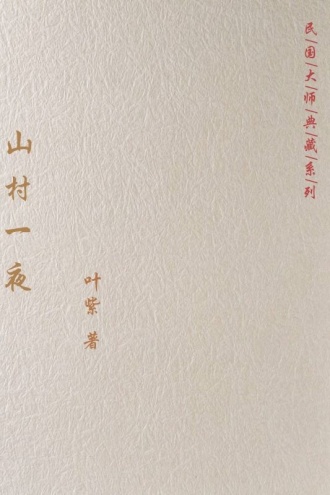 民国大师典藏系列
山村一夜
叶紫 著